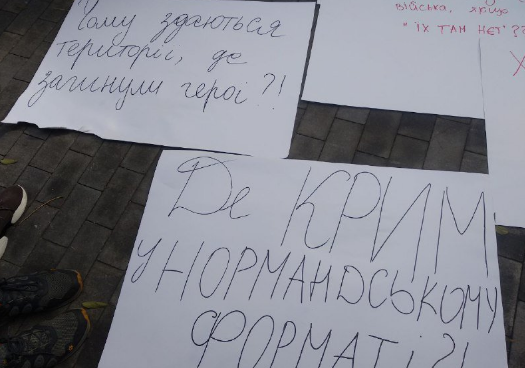 Чому здаються
території, де
загинули герої?!
війська, якщо
"їх там нет"??
Де КРИМ
у НОРМАНДСЬКОМУ
ФОРМАТІ?!